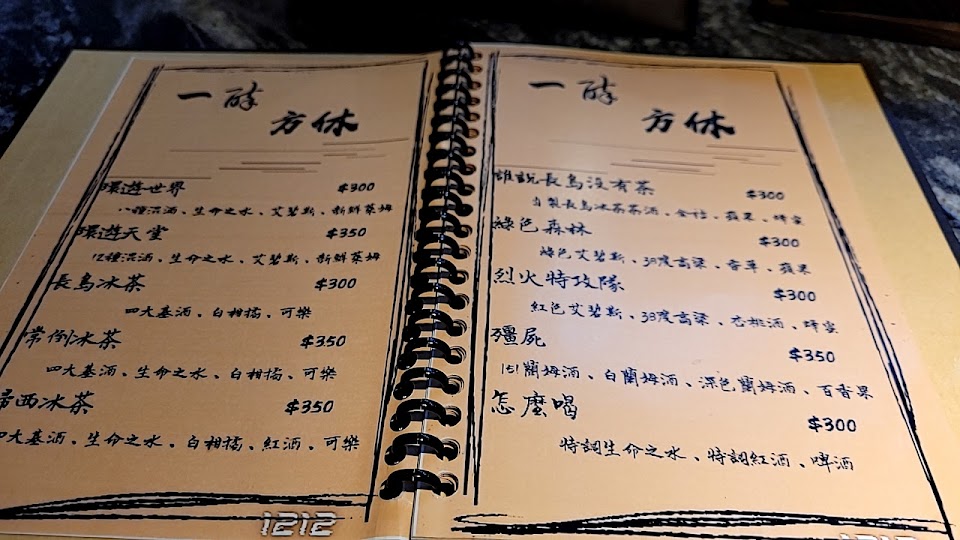 一醉
方休
環遊世界 $300
八種混酒、生命之水、艾碧斯、新鮮萊姆
環遊天堂 $350
12種混酒、生命之水、艾碧斯、新鮮萊姆
長島冰茶 $300
四大基酒、白柑橘、可樂
常倒冰茶 $350
四大基酒、生命之水、白柑橘、可樂
歸西冰茶 $350
四大基酒、生命之水、白柑橘、紅酒、可樂
1212
一醉
方休
誰說長島沒有茶 $300
自製長島冰茶茶酒、金桔、蘋果、蜂蜜
綠色森林 $300
綠色艾碧斯、38度高粱、香草、蘋果
烈火特攻隊 $300
紅色艾碧斯、38度高粱、杏桃酒、蜂蜜
殭屍 $350
151蘭姆酒、白蘭姆酒、深色蘭姆酒、百香果
怎麼喝 $300
特調生命之水、特調紅酒、啤酒
1212